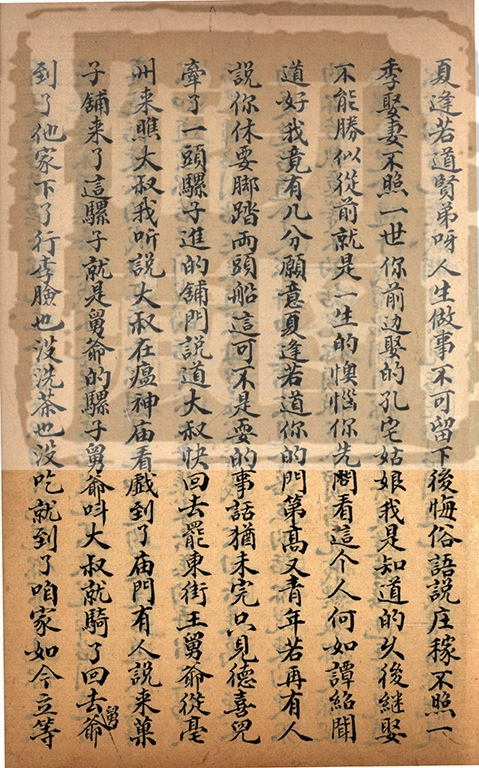 夏逢若道賢弟呀人生做事不可留下後悔俗語說庄稼不照一
季娶妻不照一世你前边娶的孔宅姑娘我是知道的久後継娶
不能勝似從前就是一生的懊惱你先問看這个人何如譚紹聞
道好我竟有几分願意夏逢若道你的門第高又青年若再有人
說你休要脚踏両頭船這可不是耍的事話猶未完只見德喜児
牽了一頭騾子進的舖門說道大叔快回去罷東街王舅爺從亳
州来瞧大叔我听說大叔在瘟神庙看戲到了庙門有人說来菓
子舖来了這騾子就是舅爺的騾子舅爺呌大叔就騎了回去舅爺
到了他家下了行李臉也没洗茶也没吃就到了咱家如今立等